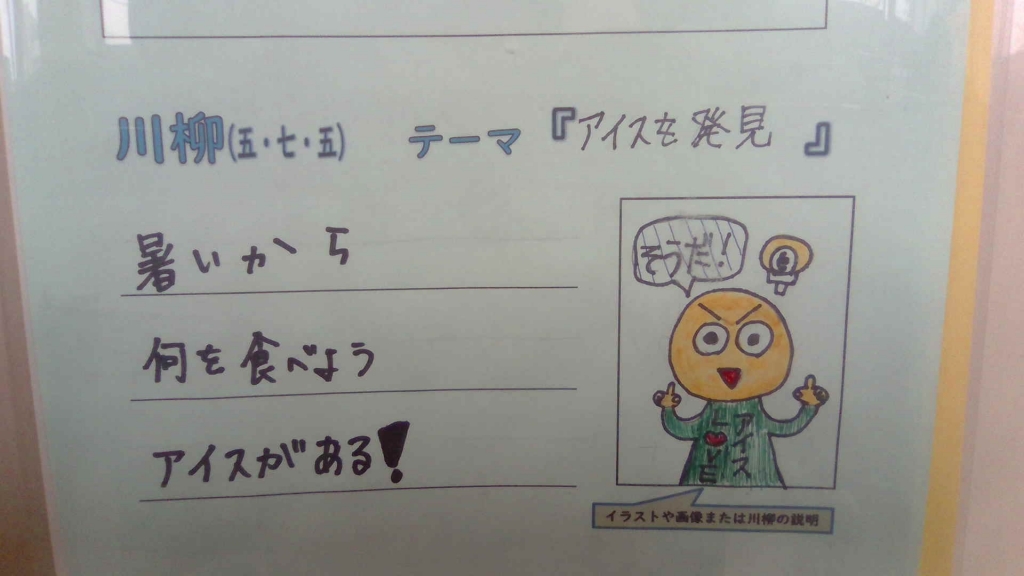 川柳(五・七・五) テーマ『アイスを発見』
暑いから
何を食べよう
アイスがある!
そうだ!
アイス
L♥VE
イラストや画像または川柳の説明